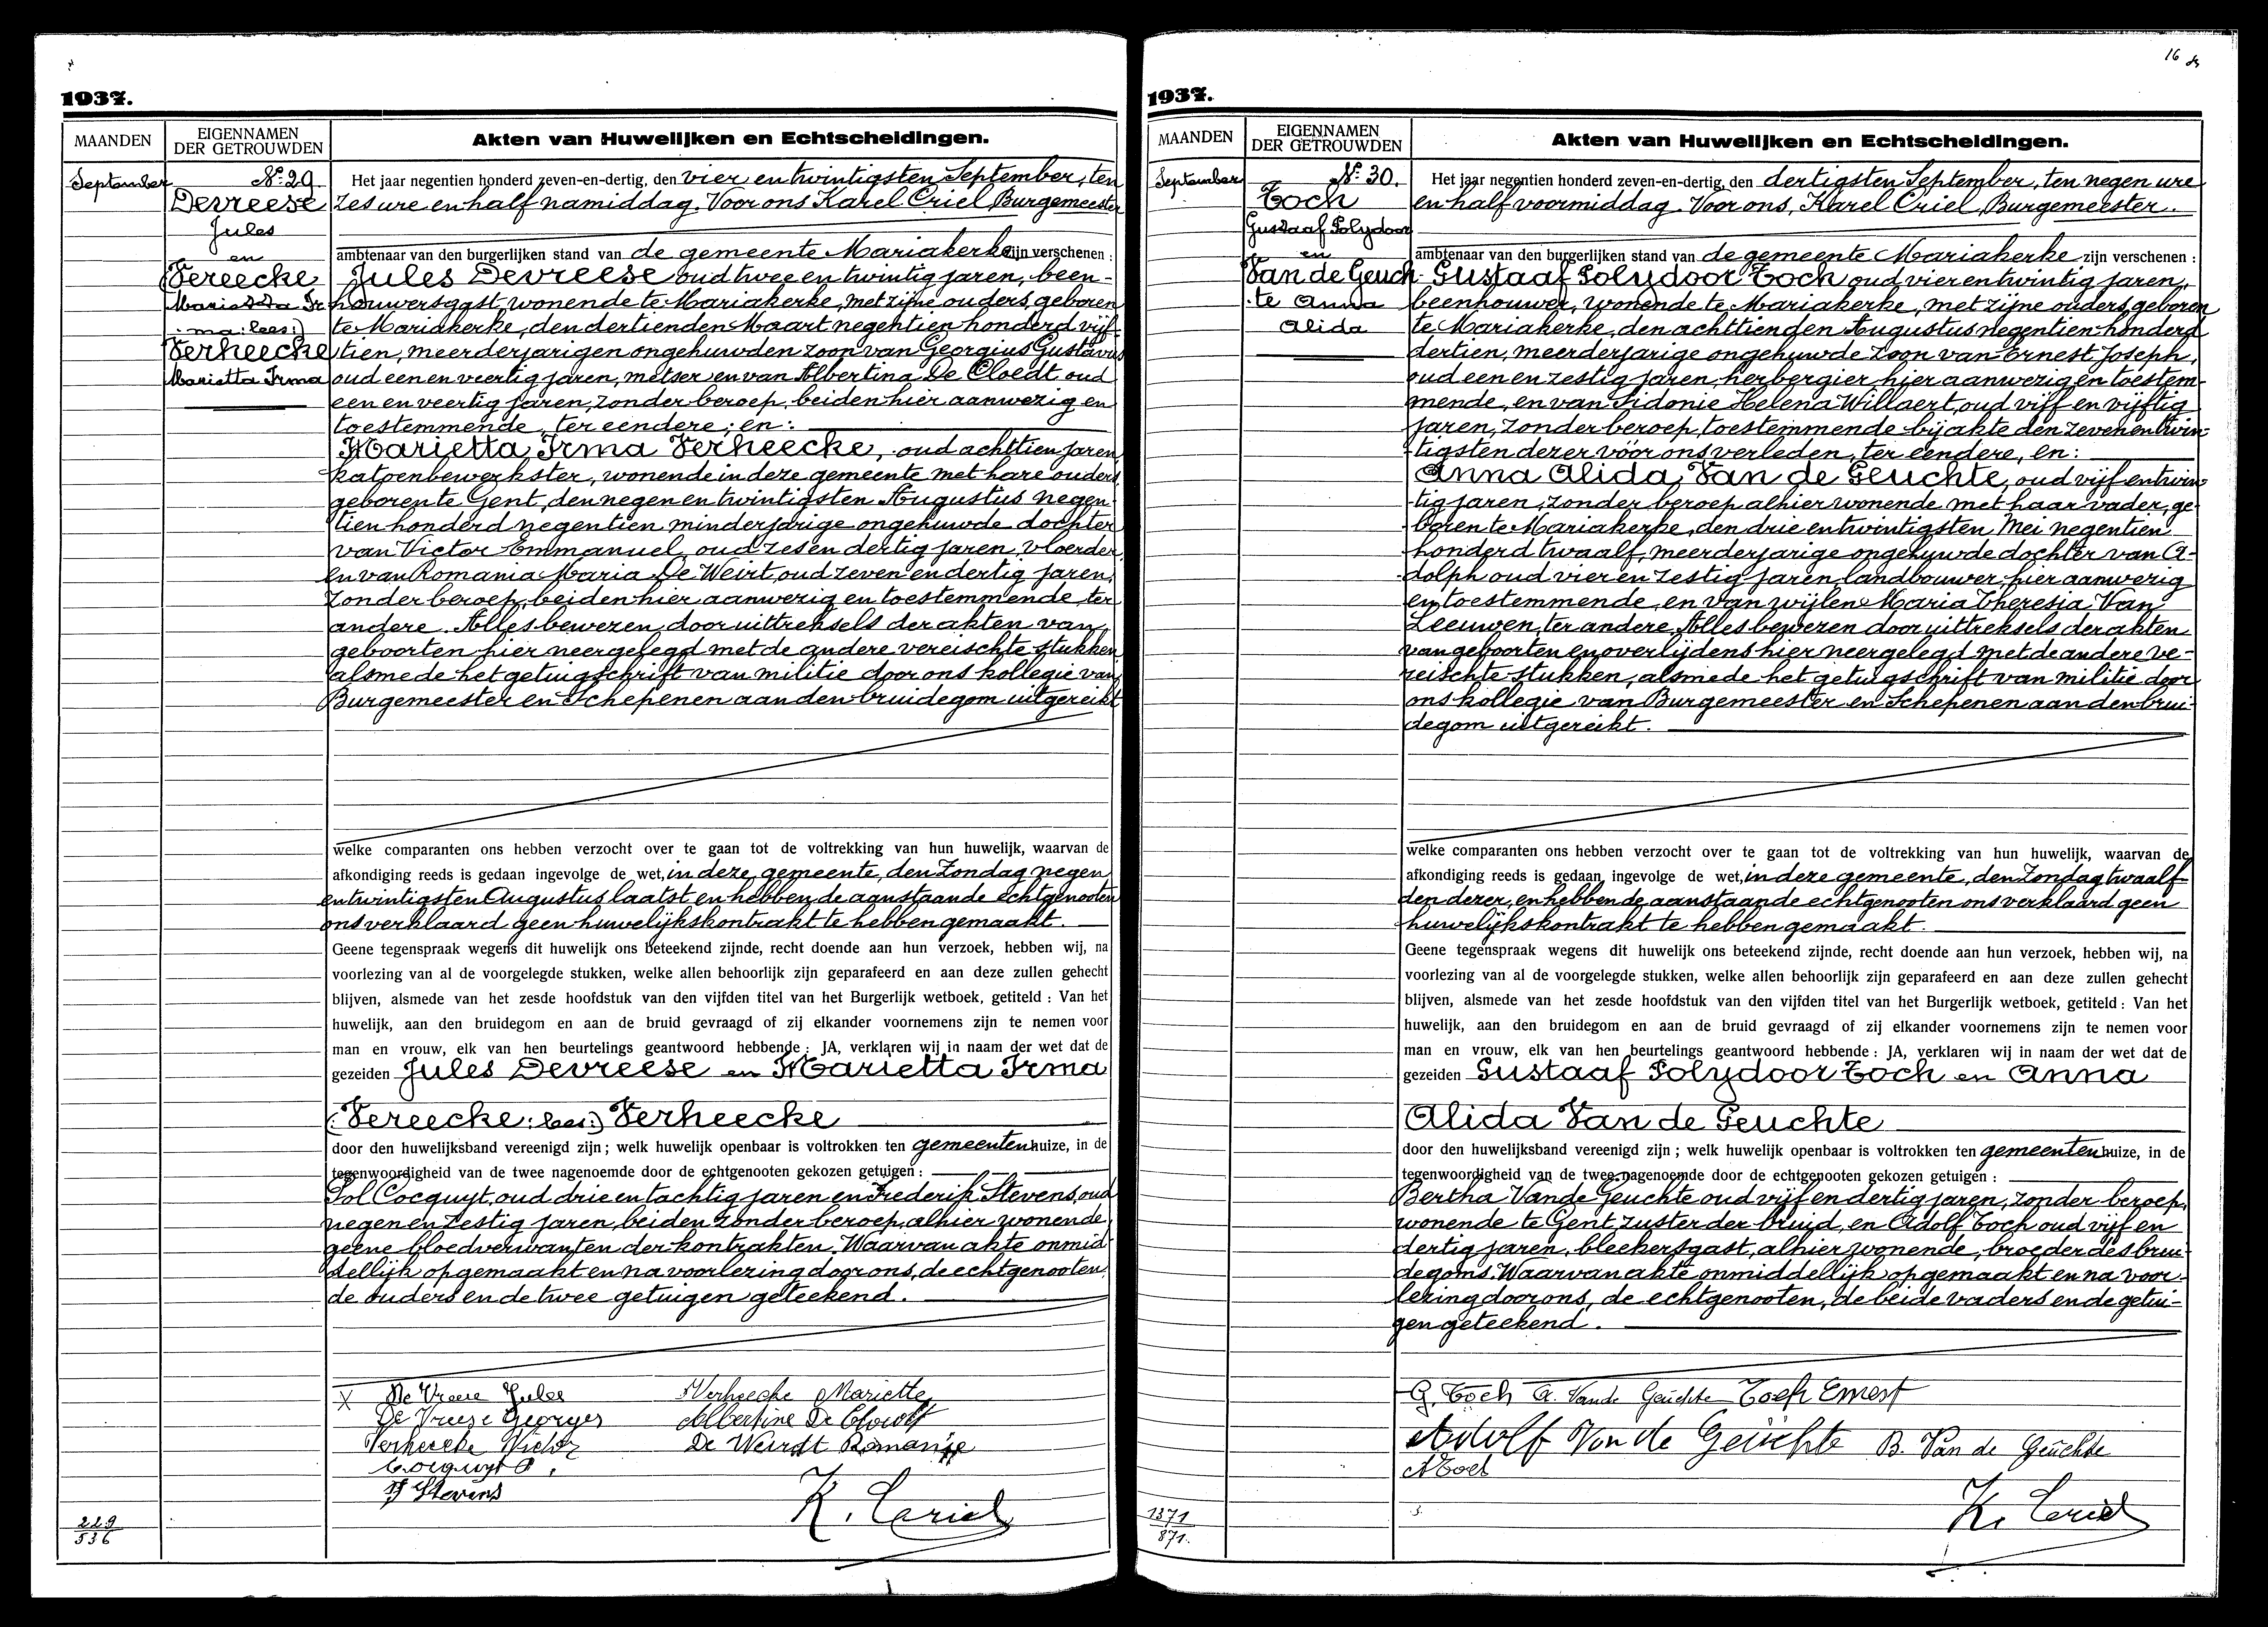 1937.
MAANDEN
EIGENNAMEN
DER GETROUWDEN
Akten van Huwelijken en Echtscheidingen.
September
No. 29
Devreese
Jules
en
(Vereecke
Marietta Ir
ma: lees:)
Verheecke
Marietta Irma
Het jaar negentien honderd zeven-en-dertig, den vier en twintigsten September, ten
zes ure en half namiddag. Voor ons Karel Criel Burgemeester
ambtenaar van den burgerlijken stand van de gemeente Mariakerke zijn verschenen :
Jules Devreese oud twee en twintig jaren, been-
houwersgast, wonende te Mariakerke, met zijne ouders, geboren
te Mariakerke, den dertienden Maart negentien honderd vijf-
tien, meerderjarigen ongehuwden zoon van Georgius Gustavus
oud een en veertig jaren, metser en van Albertina De Cloedt oud
een en veertig jaren, zonder beroep, beiden hier aanwezig en
toestemmende, ter eendere; en:
Marietta Irma Verheecke, oud achttien jaren
katoenbewerkster, wonende in deze gemeente met hare ouders,
geboren te Gent, den negen en twintigsten Augustus negen-
tien honderd negentien minderjarige ongehuwde dochter
van Victor Emmanuel, oud zes en dertig jaren, vloerder,
en van Romania Maria De Weirt, oud zeven en dertig jaren,
zonder beroep, beiden hier aanwezig en toestemmende, ter
andere. Alles bewezen door uittreksels der akten van
geboorten hier neergelegd met de andere vereischte stukken
alsmede het getuigschrift van militie door ons kollegie van
Burgemeester en Schepenen aan den bruidegom uitgereikt
welke comparanten ons hebben verzocht over te gaan tot de voltrekking van hun huwelijk, waarvan de
afkondiging reeds is gedaan ingevolge de wet, in deze gemeente, den Zondag negen
en twintigsten Augustus laatst en hebben de aanstaande echtgenooten
ons verklaard geen huwelijkskontrakt te hebben gemaakt.
Geene tegenspraak wegens dit huwelijk ons beteekend zijnde, recht doende aan hun verzoek, hebben wij, na
voorlezing van al de voorgelegde stukken, welke allen behoorlijk zijn geparafeerd en aan deze zullen gehecht
blijven, alsmede van het zesde hoofdstuk van den vijfden titel van het Burgerlijk wetboek, getiteld : Van het
huwelijk, aan den bruidegom en aan de bruid gevraagd of zij elkander voornemens zijn te nemen voor
man en vrouw, elk van hen beurtelings geantwoord hebbende : JA, verklaren wij in naam der wet dat de
gezeiden Jules Devreese en Marietta Irma
(: Vereecke: lees:) Verheecke
door den huwelijksband vereenigd zijn ; welk huwelijk openbaar is voltrokken ten gemeentenhuize, in de
tegenwoordigheid van de twee nagenoemde door de echtgenooten gekozen getuigen :
Pol Cocquyt, oud drie en tachtig jaren en Frederik Stevens, oud
negen en zestig jaren, beiden zonder beroep, alhier wonende,
geene bloedverwanten der kontrakten. Waarvan akte onmid-
dellijk opgemaakt en na voorlezing door ons, de echtgenooten,
de ouders en de twee getuigen geteekend.
X De Vreese Jules Verheecke Mariette
De Vreese Georges Albertine De Cloedt
Verheecke Victor De Weirdt Romanie
Cocquyt P.
F Stevens
K. Criel
229
536
16
1937.
MAANDEN
EIGENNAMEN
DER GETROUWDEN
Akten van Huwelijken en Echtscheidingen.
September
No. 30.
Toch
Gustaaf Polydoor
en
Van de Geuch-
te Anna
Alida
Het jaar negentien honderd zeven-en-dertig, den dertigsten September, ten negen ure
en half voormiddag. Voor ons, Karel Criel, Burgemeester.
ambtenaar van den burgerlijken stand van de gemeente Mariakerke zijn verschenen :
Gustaaf Polydoor Toch oud vier en twintig jaren,
beenhouwer, wonende te Mariakerke, met zijne ouders, geboren
te Mariakerke, den achttienden Augustus negentien honderd
dertien, meerderjarige ongehuwde zoon van Ernest Joseph,
oud een en zestig jaren, herbergier hier aanwezig en toestem-
mende, en van Sidonie Helena Willaert, oud vijf en vijftig
jaren, zonder beroep, toestemmende bij akte den zeven en twin-
tigsten dezer vóór ons verleden, ter eendere, en:
Anna Alida Van de Geuchte, oud vijf en twin-
tig jaren, zonder beroep alhier wonende met haar vader, ge-
boren te Mariakerke, den drie en twintigsten Mei negentien
honderd twaalf, meerderjarige ongehuwde dochter van A-
dolph oud vier en zestig jaren, landbouwer, hier aanwezig
en toestemmende, en van wijlen Maria Theresia Van
Leeuwen, ter andere. Alles bewezen door uittreksels der akten
van geboorten en overlijdens hier neergelegd met de andere ve-
reischte stukken, alsmede het getuigschrift van militie door
ons kollegie van Burgemeester en Schepenen aan den brui-
degom uitgereikt.
welke comparanten ons hebben verzocht over te gaan tot de voltrekking van hun huwelijk, waarvan de
afkondiging reeds is gedaan ingevolge de wet, in deze gemeente, den Zondag twaalf-
den dezer, en hebben de aanstaande echtgenooten ons verklaard geen
huwelijkskontrakt te hebben gemaakt.
Geene tegenspraak wegens dit huwelijk ons beteekend zijnde, recht doende aan hun verzoek, hebben wij, na
voorlezing van al de voorgelegde stukken, welke allen behoorlijk zijn geparafeerd en aan deze zullen gehecht
blijven, alsmede van het zesde hoofdstuk van den vijfden titel van het Burgerlijk wetboek, getiteld : Van het
huwelijk, aan den bruidegom en aan de bruid gevraagd of zij elkander voornemens zijn te nemen voor
man en vrouw, elk van hen beurtelings geantwoord hebbende : JA, verklaren wij in naam der wet dat de
gezeiden Gustaaf Polydoor Toch en Anna
Alida Van de Geuchte
door den huwelijksband vereenigd zijn ; welk huwelijk openbaar is voltrokken ten gemeentenhuize, in de
tegenwoordigheid van de twee nagenoemde door de echtgenooten gekozen getuigen :
Bertha Van de Geuchte oud vijf en dertig jaren, zonder beroep,
wonende te Gent, zuster der bruid, en Adolf Toch oud vijf en
dertig jaren, bleekersgast, alhier wonende, broeder des brui-
degoms. Waarvan akte onmiddellijk opgemaakt en na voor-
lezing door ons, de echtgenooten, de beide vaders en de getui-
gen geteekend.
G. Toch A. Van de Geuchte Toch Ernest
Adolf Van de Geuchte B. Van de Geuchte
A Toch
K. Criel
1371
871.